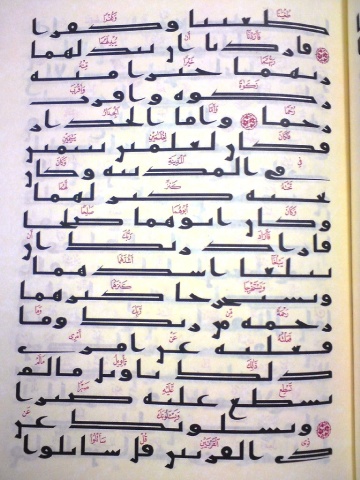 طغينا وكفرا
فاردنا ان يبدلهما
ربهما خيرا منه
زكوه واقرب
رحما واما الجدار
فكان لغلمين يتيمين
في المدينه وكان
تحته كنز لهما
وكان ابوهما صلحا
فاراد ربك ان
يبلغا اشدهما
ويستخرجا كنزهما
رحمه من ربك وما
فعلته عن امري
ذلك تاويل ما لم
تسطع عليه صبرا
ويسلونك عن
ذي القرنين قل ساتلوا